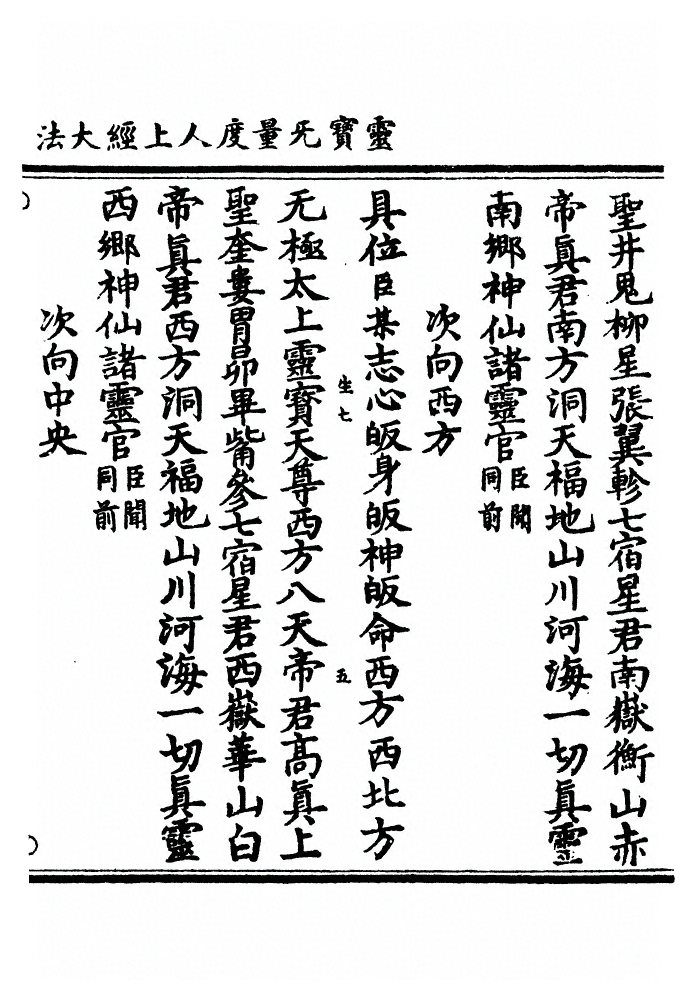 靈寶旡量度人上經大法
聖井鬼柳星張翼軫七宿星君南嶽衡山赤
帝眞君南方洞天福地山川河海一切眞靈
南鄉神仙諸靈官臣聞同前
次向西方
具位臣某志心皈身皈神皈命西方西北方
生七
五
无極太上靈寶天尊西方八天帝君高眞上
聖奎婁胃昴畢觜參七宿星君西嶽華山白
帝眞君西方洞天福地山川河海一切眞靈
西鄉神仙諸靈官臣聞同前
次向中央